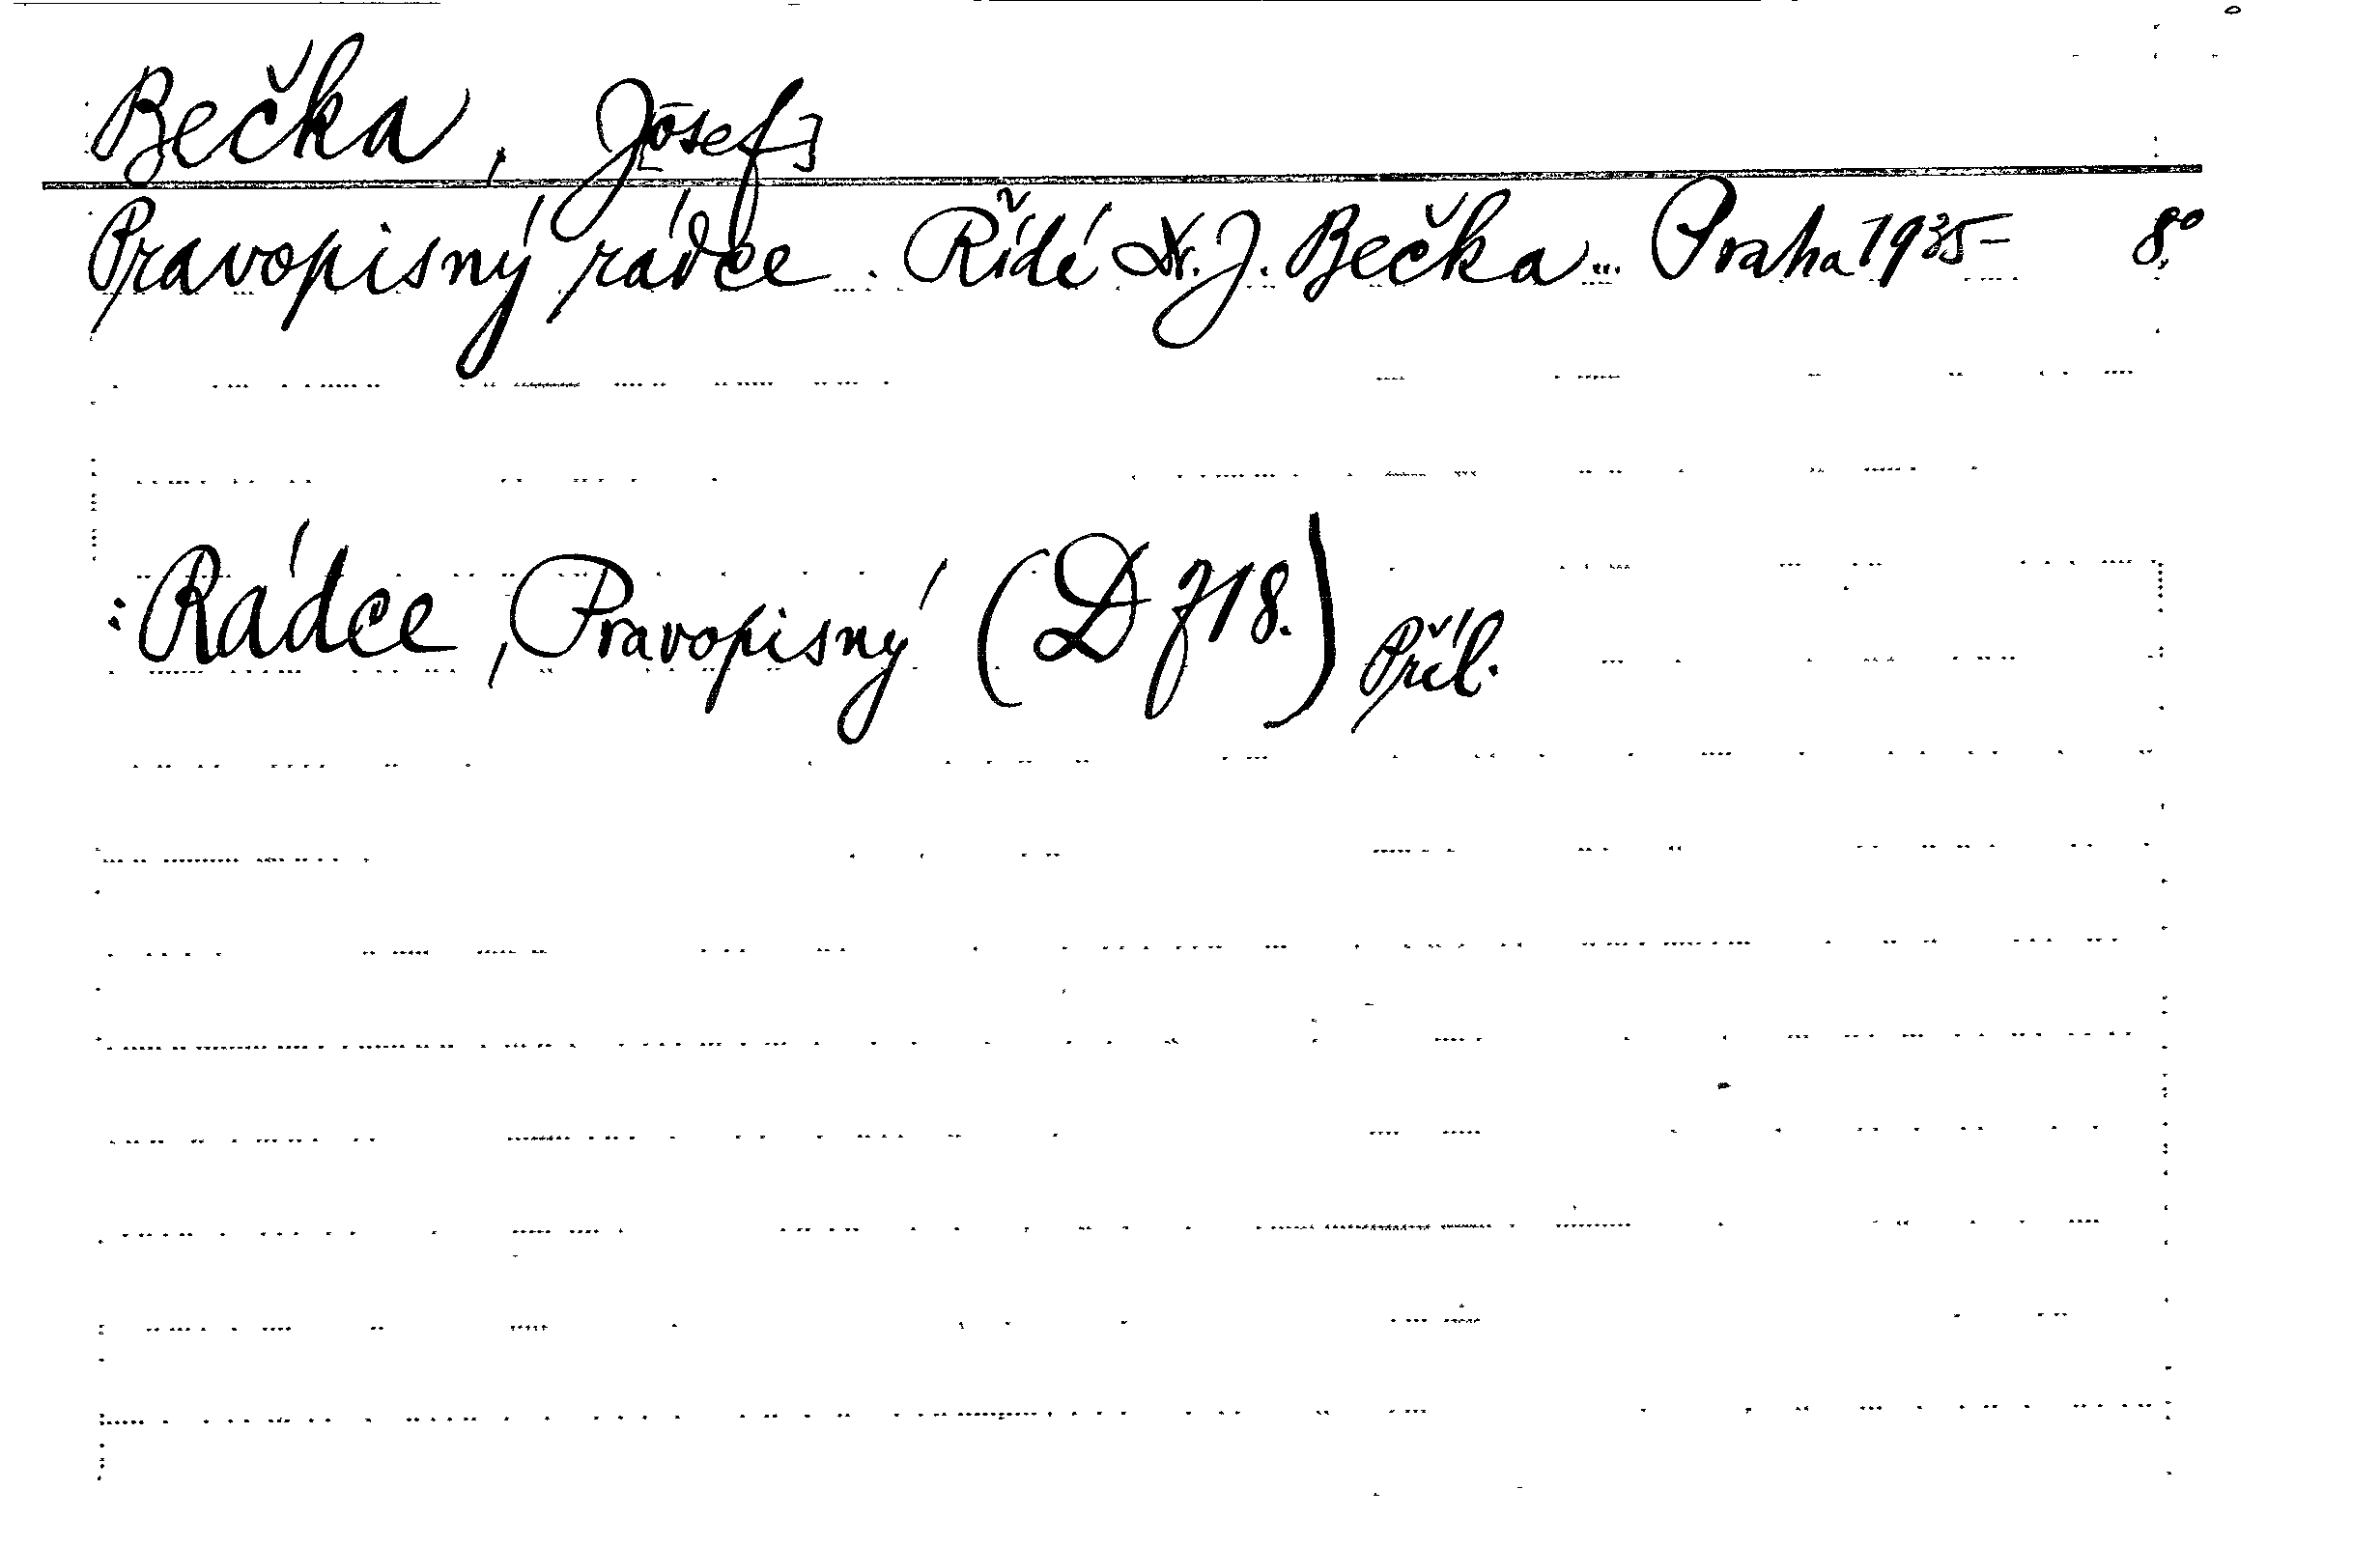 Bečka, J[osef]
Pravopisný rádce. Řídé Dr. J. Bečka... Praha 1935– 8°.
: Rádce, Pravopisný (D f 18.) Příl.